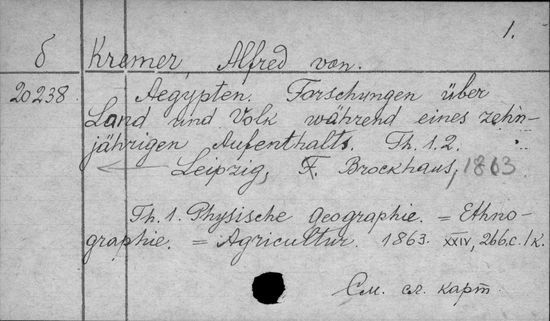 1.
б Kremer, Alfred von.
20238. Aegypten. Forschungen über
Land und Volk während eines zehn-
jährigen Aufenthalts. Th. 1.2.
Leipzig, F. Brockhaus, 1863
Th. 1. Physische Geographie. = Ethno-
graphie. = Agricultur. 1863. XXIV, 266 c. 1 к.
См. сл. карт.